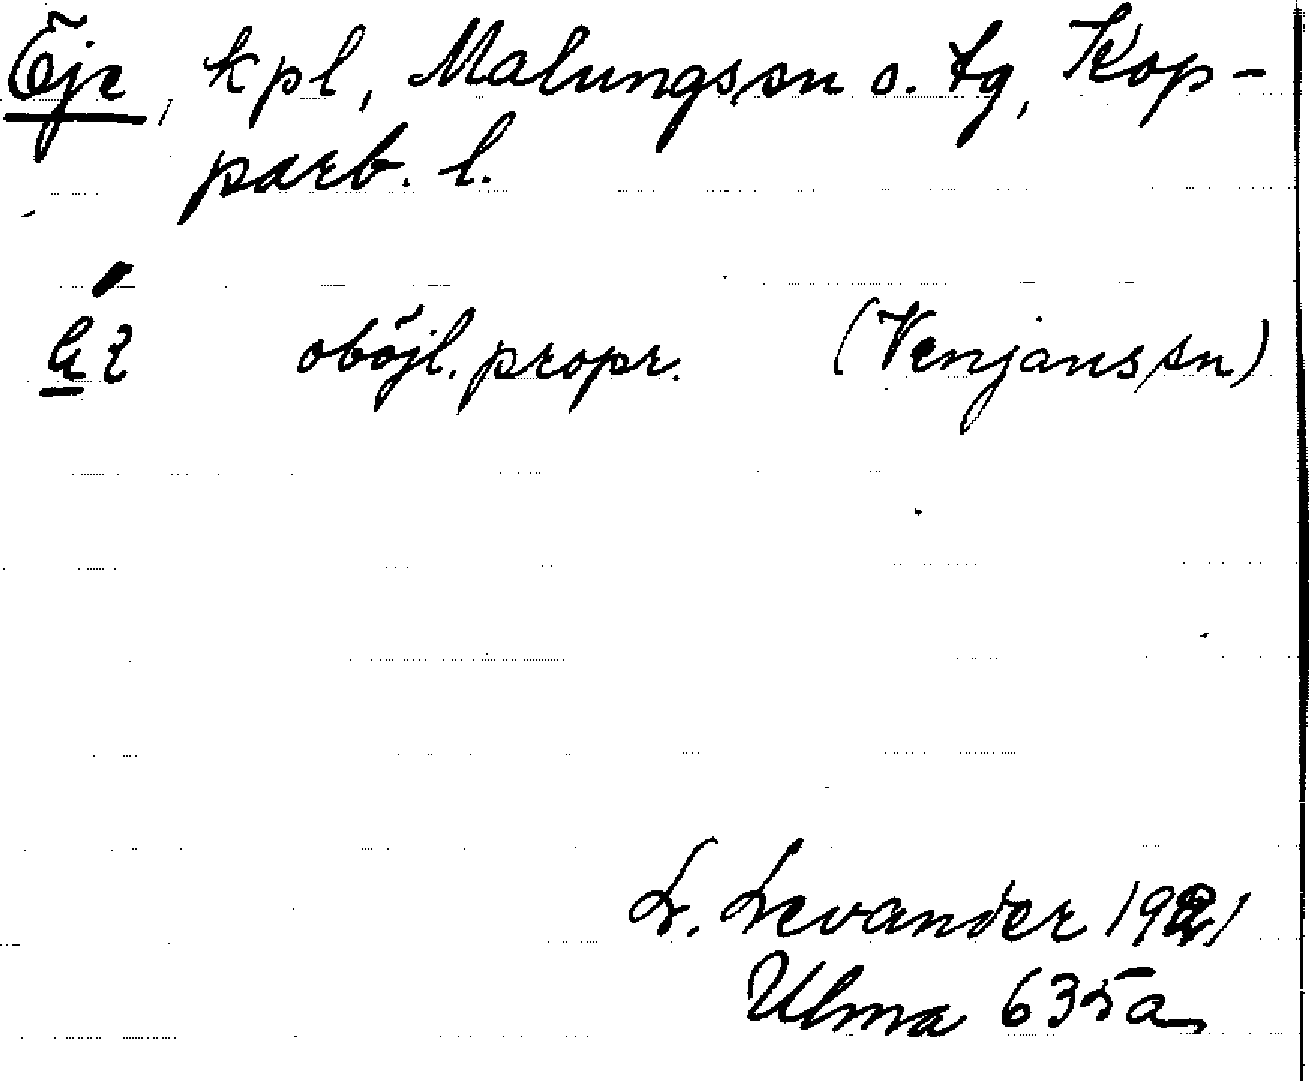 Öje, kpl, Malungs sn o. tg, Kop-
parb. l.
oböjl. propr. (Venjans sn)
L. Levander 1921
Ulma 635a